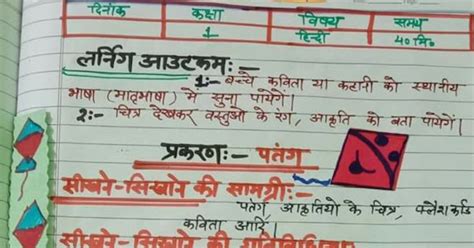 दिनांक कक्षा विषय समय
1 हिन्दी ४० मि०
लर्निंग आउटकम:-
1:- बच्चे कविता या कहानी को स्थानीय
भाषा (मातृभाषा) में सुना पायेंगे।
2:- चित्र देखकर वस्तुओ के रंग, आकृति को बता पायेंगें।
प्रकरण:- पतंग
सीखने-सिखाने की सामग्री:-
पतंग, आकृतियो के चित्र, फ्लैशकार्ड
कविता आदि।
सीखने-सिखाने की गतिविधियां:-